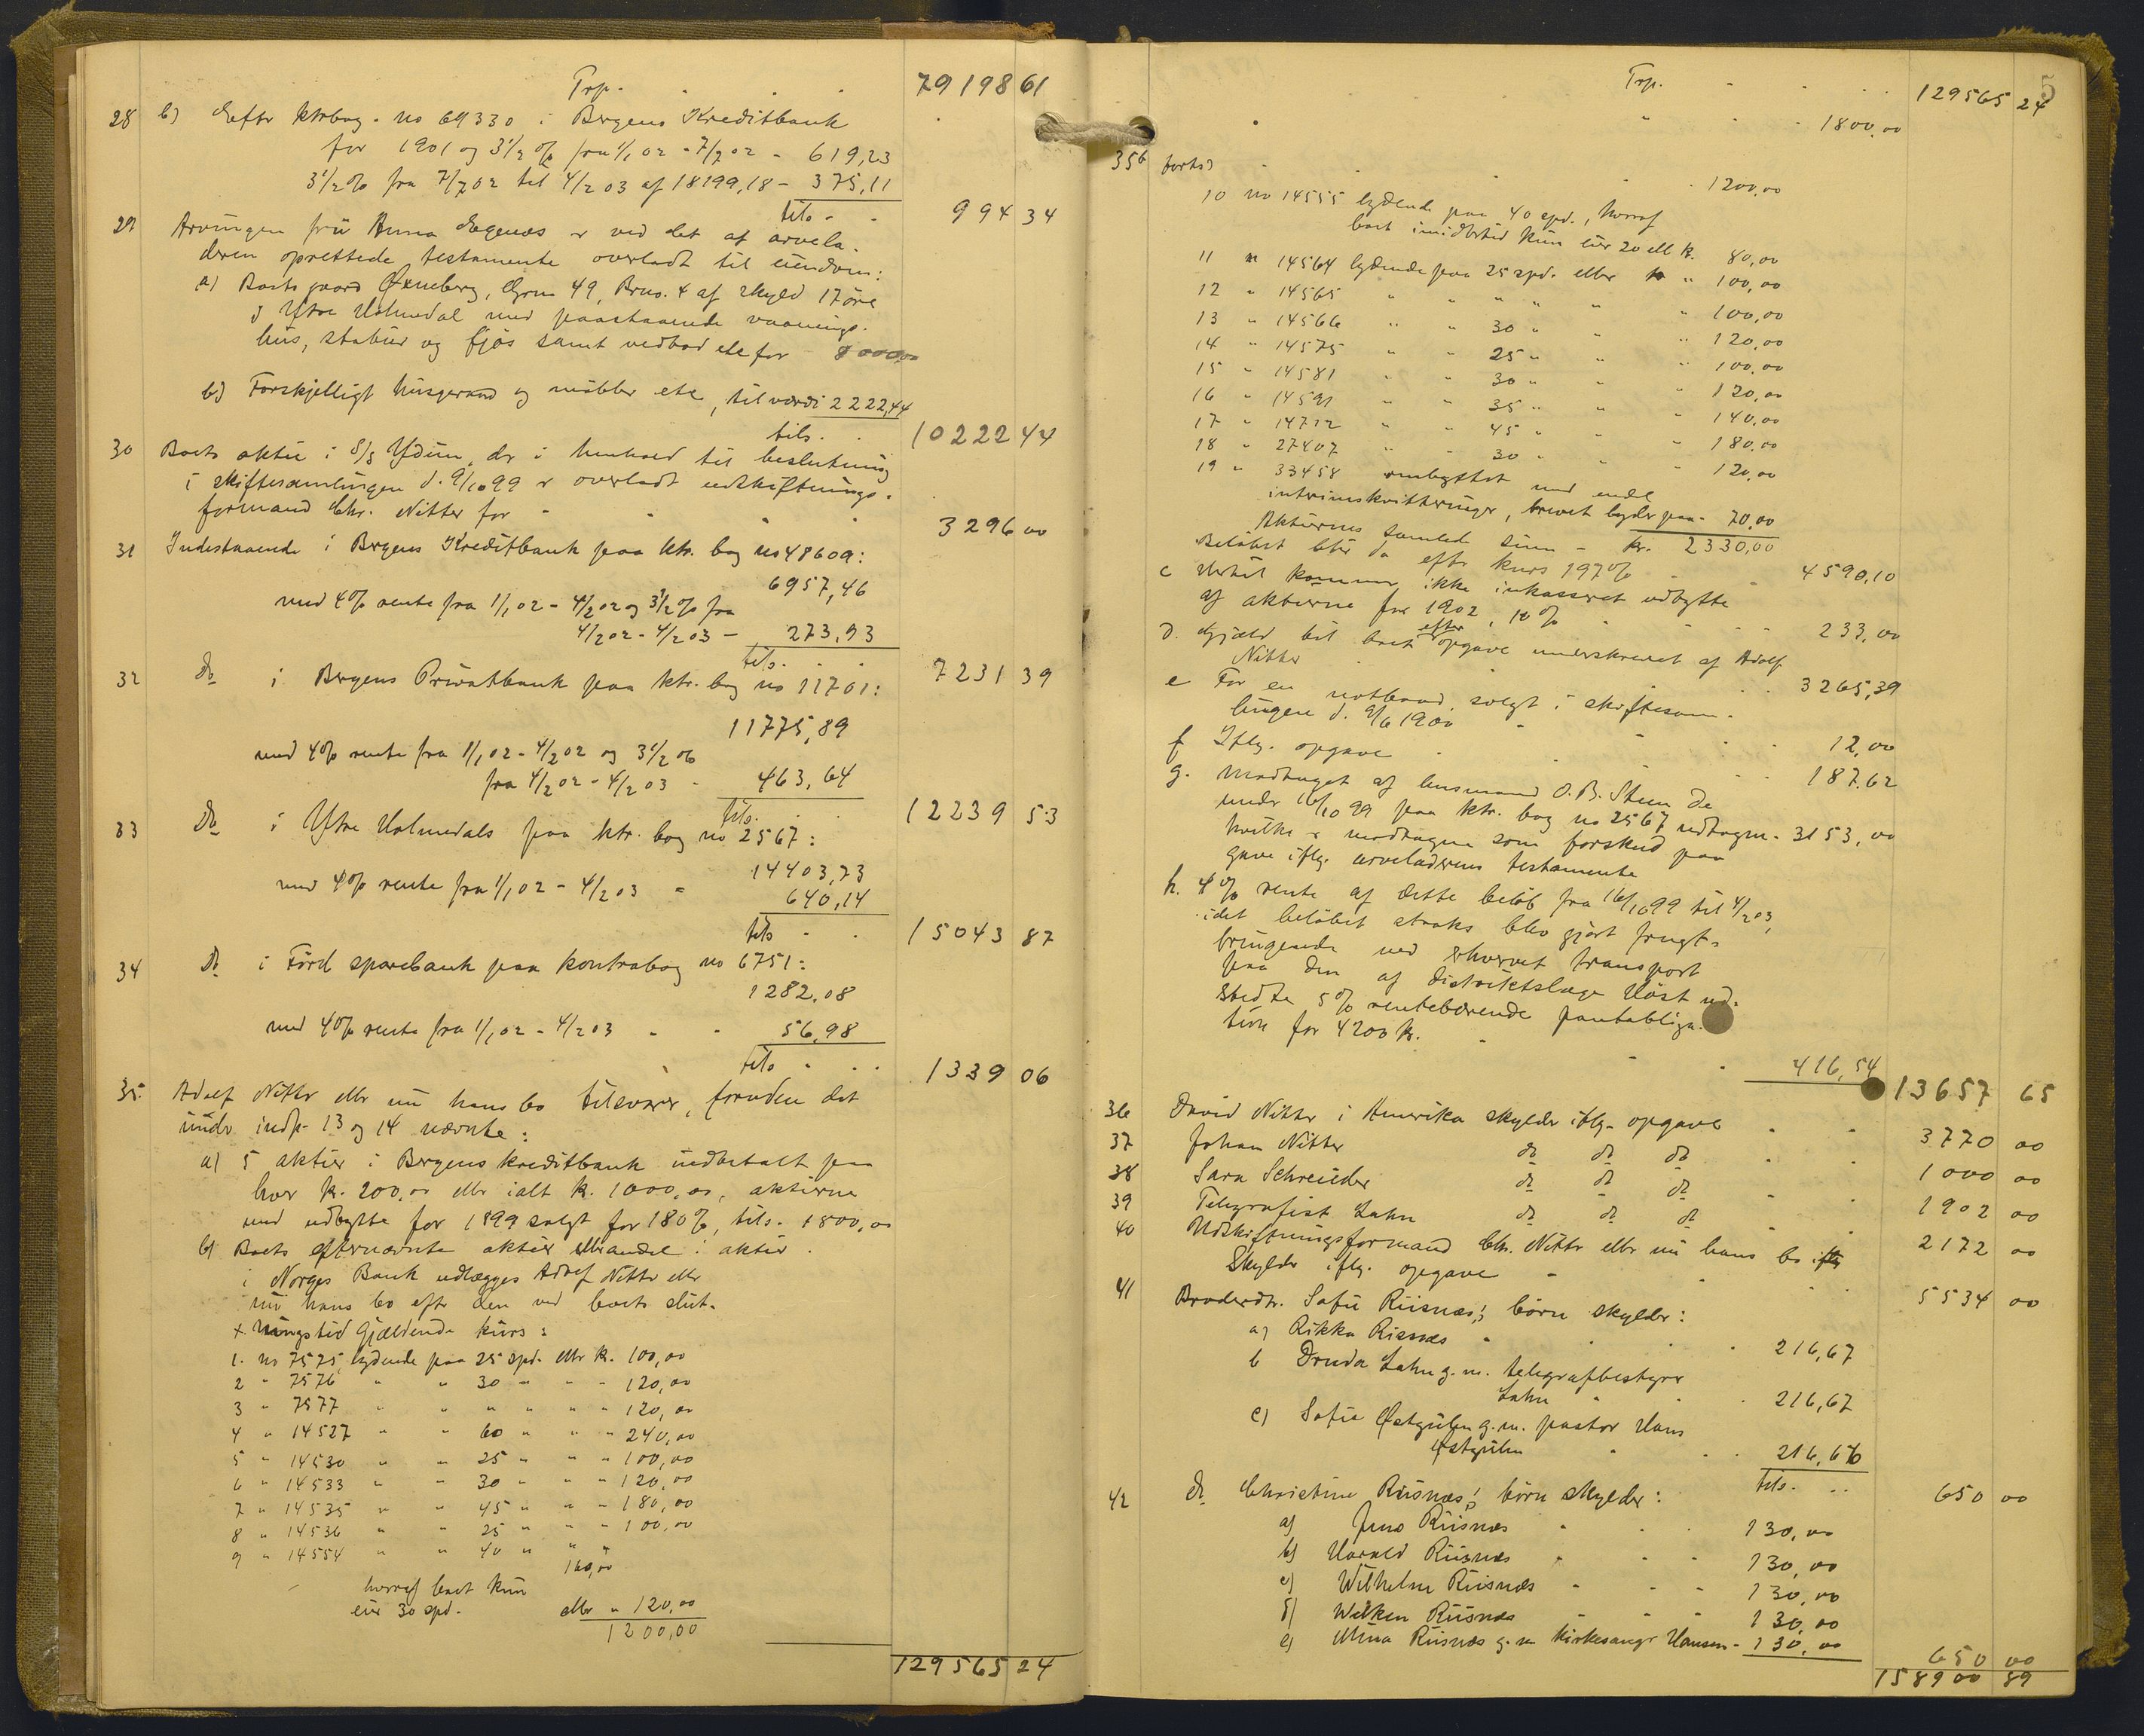 Trp. . . . 79198 61
28 b) Efter ktrbog. no 69330 i Bergens Kreditbank
for 1901 og 3 1/2 % fra 1/1 02 - 7/7 02 - 619,23
3 1/2 % fra 7/7 02 til 4/2 03 af 18199,18 - 375,11
tils - - 994 34
29 Arvingen frü Anna Ægenæs er ved det af arvela-
deren oprettede testamente overladt til eiendom:
a) Boets gaard Øxneberg, Gno 49, Brno. 4 af skyld 17 øre
i Ytre Holmedal med paastaaende vaanings-
hüs, stabür og fjøs samt vedbod etc for 8000,00
b) Forskjelligt hüsgeraad og møbler etc, til værdi 2222,44
tils. . 10222 44
30 Boets aktie i S/S Ydün, der i henhold til beslutning
i skiftesamlingen d. 9/10 99 er overladt udskiftnings-
formand Chr. Nitter for - - - - 3296 00
31 Indestaaende i Bergens Kreditbank paa ktr. bog no 48609:
6957,46
med 4% rente fra 1/1 02 - 4/2 02 og 3 1/2 % fra
4/2 02 - 4/2 03 - 273,93
tils. . . 7231 39
32 Do i Bergens Privatbank paa ktr. bog no 11701:
11775,89
med 4% rente fra 1/1 02 - 4/2 02 og 3 1/2 %
fra 4/2 02 - 4/2 03 - 463,64
tils. . . 12239 53
33 Do i Ytre Holmedals paa ktr. bog no 2567:
14403,73
med 4% rente fra 1/1 02 - 4/2 03 - 640,14
tils - . 15043 87
34 Do i Förd sparebank paa kontrabog no 6751:
1282,08
med 4% rente fra 1/1 02 - 4/2 03 - - 56,98
tils . . . 1339 06
35. Adolf Nitter eller nü hans bo tilsvarer, foruden det
ünder indp. 13 og 14 nævnte:
a) 5 aktier i Bergens kreditbank indbetalt paa
hver kr. 200,00 eller ialt kr. 1000,00, aktierne
med udbytte for 1899 solgt for 180%, tils. 1800,00
b) Boets efternævnte aktier eller andel i aktier
i Norges Bank udlægges Adolf Nitter eller
nü hans bo efter den ved boets slüt-
+ ningstid gjældende kürs:
1. no 7575 lydende paa 25 spd. eller kr. 100,00
2 " 7576 " " 30 " " - 120,00
3 " 7577 " " " " " " 120,00
4 " 14527 " " 60 " " " 240,00
5 " 14530 " " 25 " " " 100,00
6 " 14533 " " 30 " " " 120,00
7 " 14535 " " 45 " " - 180,00
8 " 14536 " " 25 " " " 100,00
9 " 14554 " " 40 " " "
160,00
hvoraf boet kün
eier 30 spd. eller " 120,00
1200,00
129565 24
5
Trp. - - . . 129565 24
. " - - 1800,00
35b forts) - - - - 1200,00
10 no 14555 lydende paa 40 spd., hvoraf
boet imidlertid kün eier 20 ell kr. 80,00
11 " 14564 lydende paa 25 spd. eller kr " 100,00
12 " 14565 " " " " " " 100,00
13 " 14566 " " 30 " " " 120,00
14 " 14575 " " 25 " " " 100,00
15 " 14581 " " 30 " " " 120,00
16 " 14591 " " 35 " " " 140,00
17 " 14712 " " 45 " " " 180,00
18 " 27407 " " 30 " " " 120,00
19 " 33458 ombyttet med endel
interimskvitteringer, brevet lyder paa - 70,00
Aktiernes samlede süm - kr. 2330,00
Beløbet blir da efter kurs 197% - 4590,10
c Hertil kommer ikke inkasseret udbytte
af aktierne for 1902, 10% - - - 233,00
d. Gjæld til boet efter opgave underskrevet af Adolf
Nitter - - - 3265,39
e For en notbaad, solgt i skiftesam-
lingen d. 9/6 1900 - - - - 12,00
f Iflg. opgave - - - - 187,62
g. Modtaget af lensmand O.B. Steen de
under 16/10 99 paa ktr. bog no 2567 udtagne - 3153,00
hvilke er modtagne som forskud paa
gave iflg. arveladerens testamente
h. 4% rente af dette beløb fra 16/10 99 til 4/2 03,
idet beløbet straks blev gjort frugt-
bringende ved erhvervet transport
paa den af distriktslæge Høst ud-
stedte 5% rentebærende pantobliga-
tion for 4200 kr. - - - 416,54
13657 65
36 David Nitter i Amerika skylder iflg. opgave - - 3770 00
37 Johan Nitter do do do - - 1000 00
38 Sara Schreüder do do do - - 1902 00
39 Telegrafist Lahn do do do - - 2172 00
40 Udskiftningsformand Chr. Nitter eller nü hans bo iflg
skylder iflg. opgave - - - - 5534 00
41 Broderdtr. Sofie Riisnæs's børn skylder:
a) Rikka Risnæs - - - 216,67
b Druda Lahn g.m. telegrafbestyrer
Lahn - - - 216,67
c) Sofie Østgülen g.m. pastor Hans
Østgülen - - - 216,66
tils. . . 650 00
42 Do Christine Riisnæs's børn skylder:
a) Jens Riisnæs - - - 130,00
b) Harald Riisnæs - - - 130,00
c) Wilhelm Riisnæs - - - 130,00
d) Welken Riisnæs - - - 130,00
e) Mina Riisnæs g.m kirkesanger Hansen - 130,00
650 00
158900 89